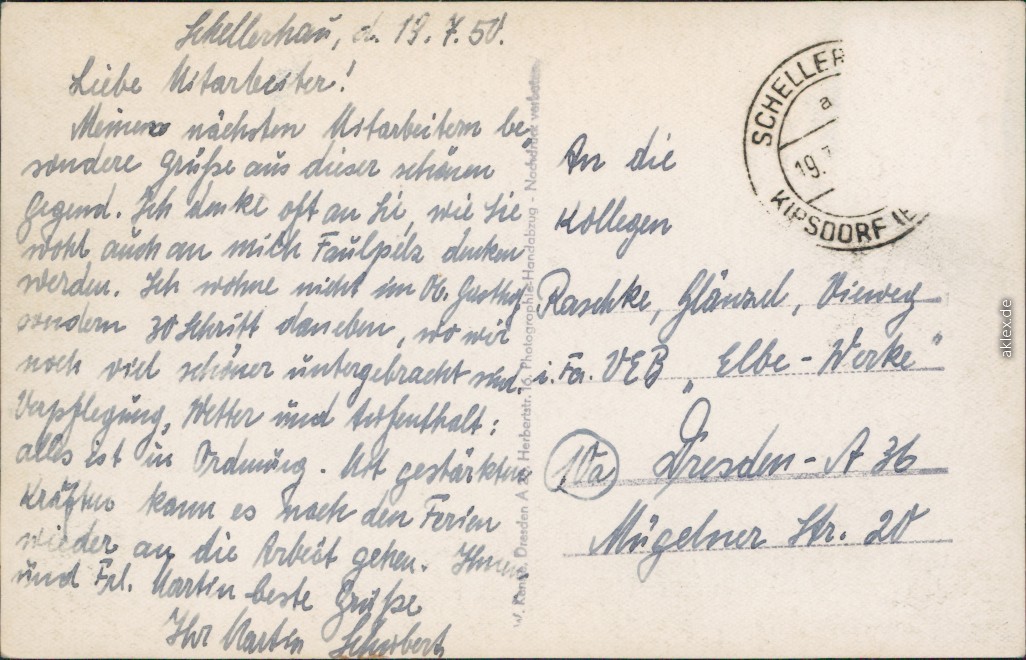 Schellerhau, d. 19.7.50.
Liebe Mitarbeiter!
Meinen nächsten Mitarbeitern be-
sondere Grüße aus dieser schönen
Gegend. Ich denke oft an Sie, wie Sie
wohl auch an mich Faulpelz denken
werden. Ich wohne nicht im Ob. Gasthof,
sondern 30 Schritt daneben, wo wir
noch viel schöner untergebracht sind.
Verpflegung, Wetter und Aufenthalt:
alles ist in Ordnung. Mit gestärkten
Kräften kann es nach den Ferien
wieder an die Arbeit gehen. Ihnen
und Frl. Martin beste Grüße
Ihr Martin Schubert
W. Dresden A 27, Herbertstr. 16. Photographie-Handabzug - Nachdruck verboten
SCHELLER
a
19.7
KIPSDORF (E
An die
Kollegen
Raschke, Glänzel, Vieweg
i. Fa. VEB „Elbe-Werke"
10a Dresden-A 36
Mügelner Str. 20
aklex.de